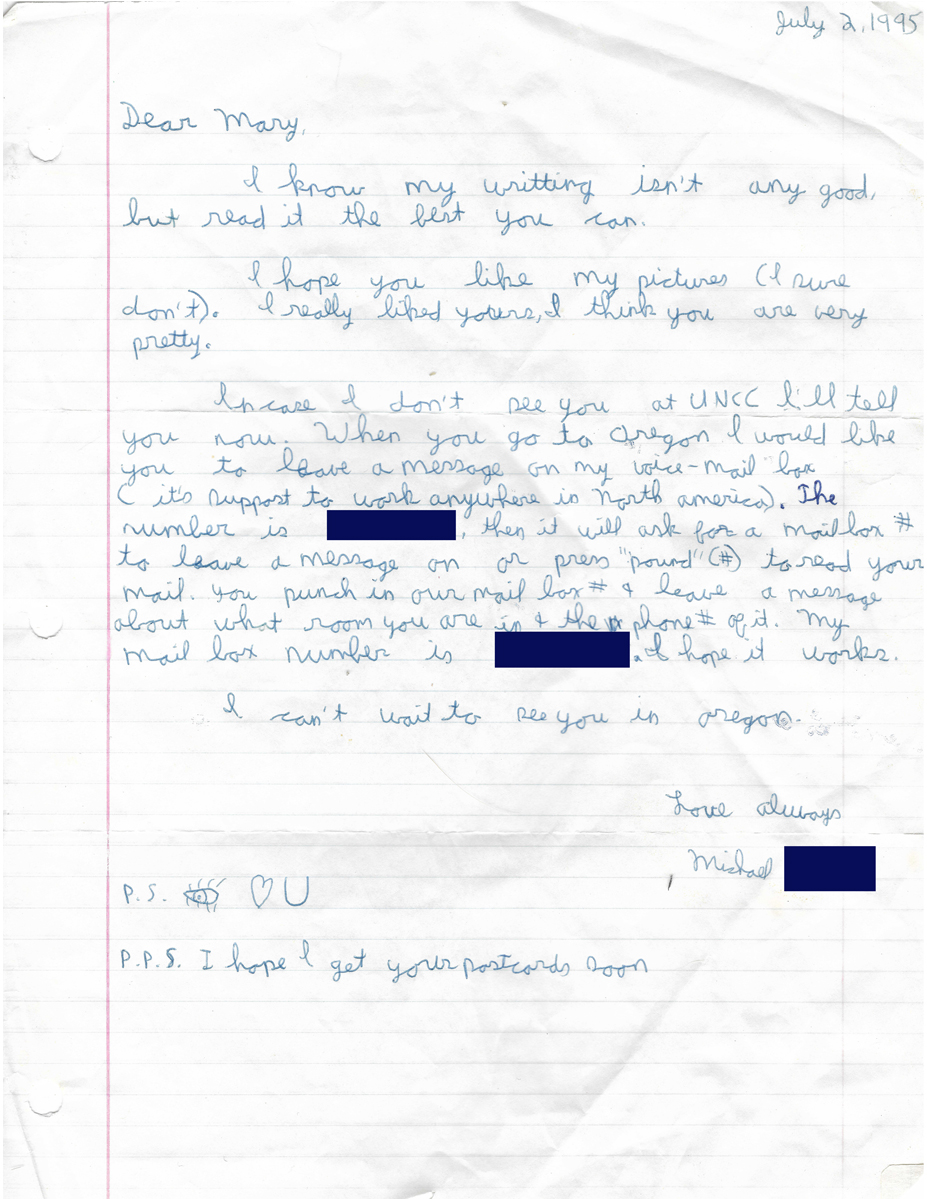 July 2, 1995
Dear Mary,
I know my writting isn't any good,
but read it the best you can.
I hope you like my pictures (I sure
don't). I really liked yours, I think you are very
pretty.
In case I don't see you at UNCC I'll tell
you now. When you go to Oregon I would like
you to leave a message on my voice-mail box
( it's suppost to work anywhere in North america). The
number is , then it will ask for a mailbox #
to leave a message on or press "pound" (#) to read your
mail. you punch in our mail box # & leave a message
about what room you are in & the phone # of it. My
mail box number is . I hope it works.
I can't wait to see you in oregon.
Love always
Michael
P.S. U
P.P.S. I hope I get your postcards soon